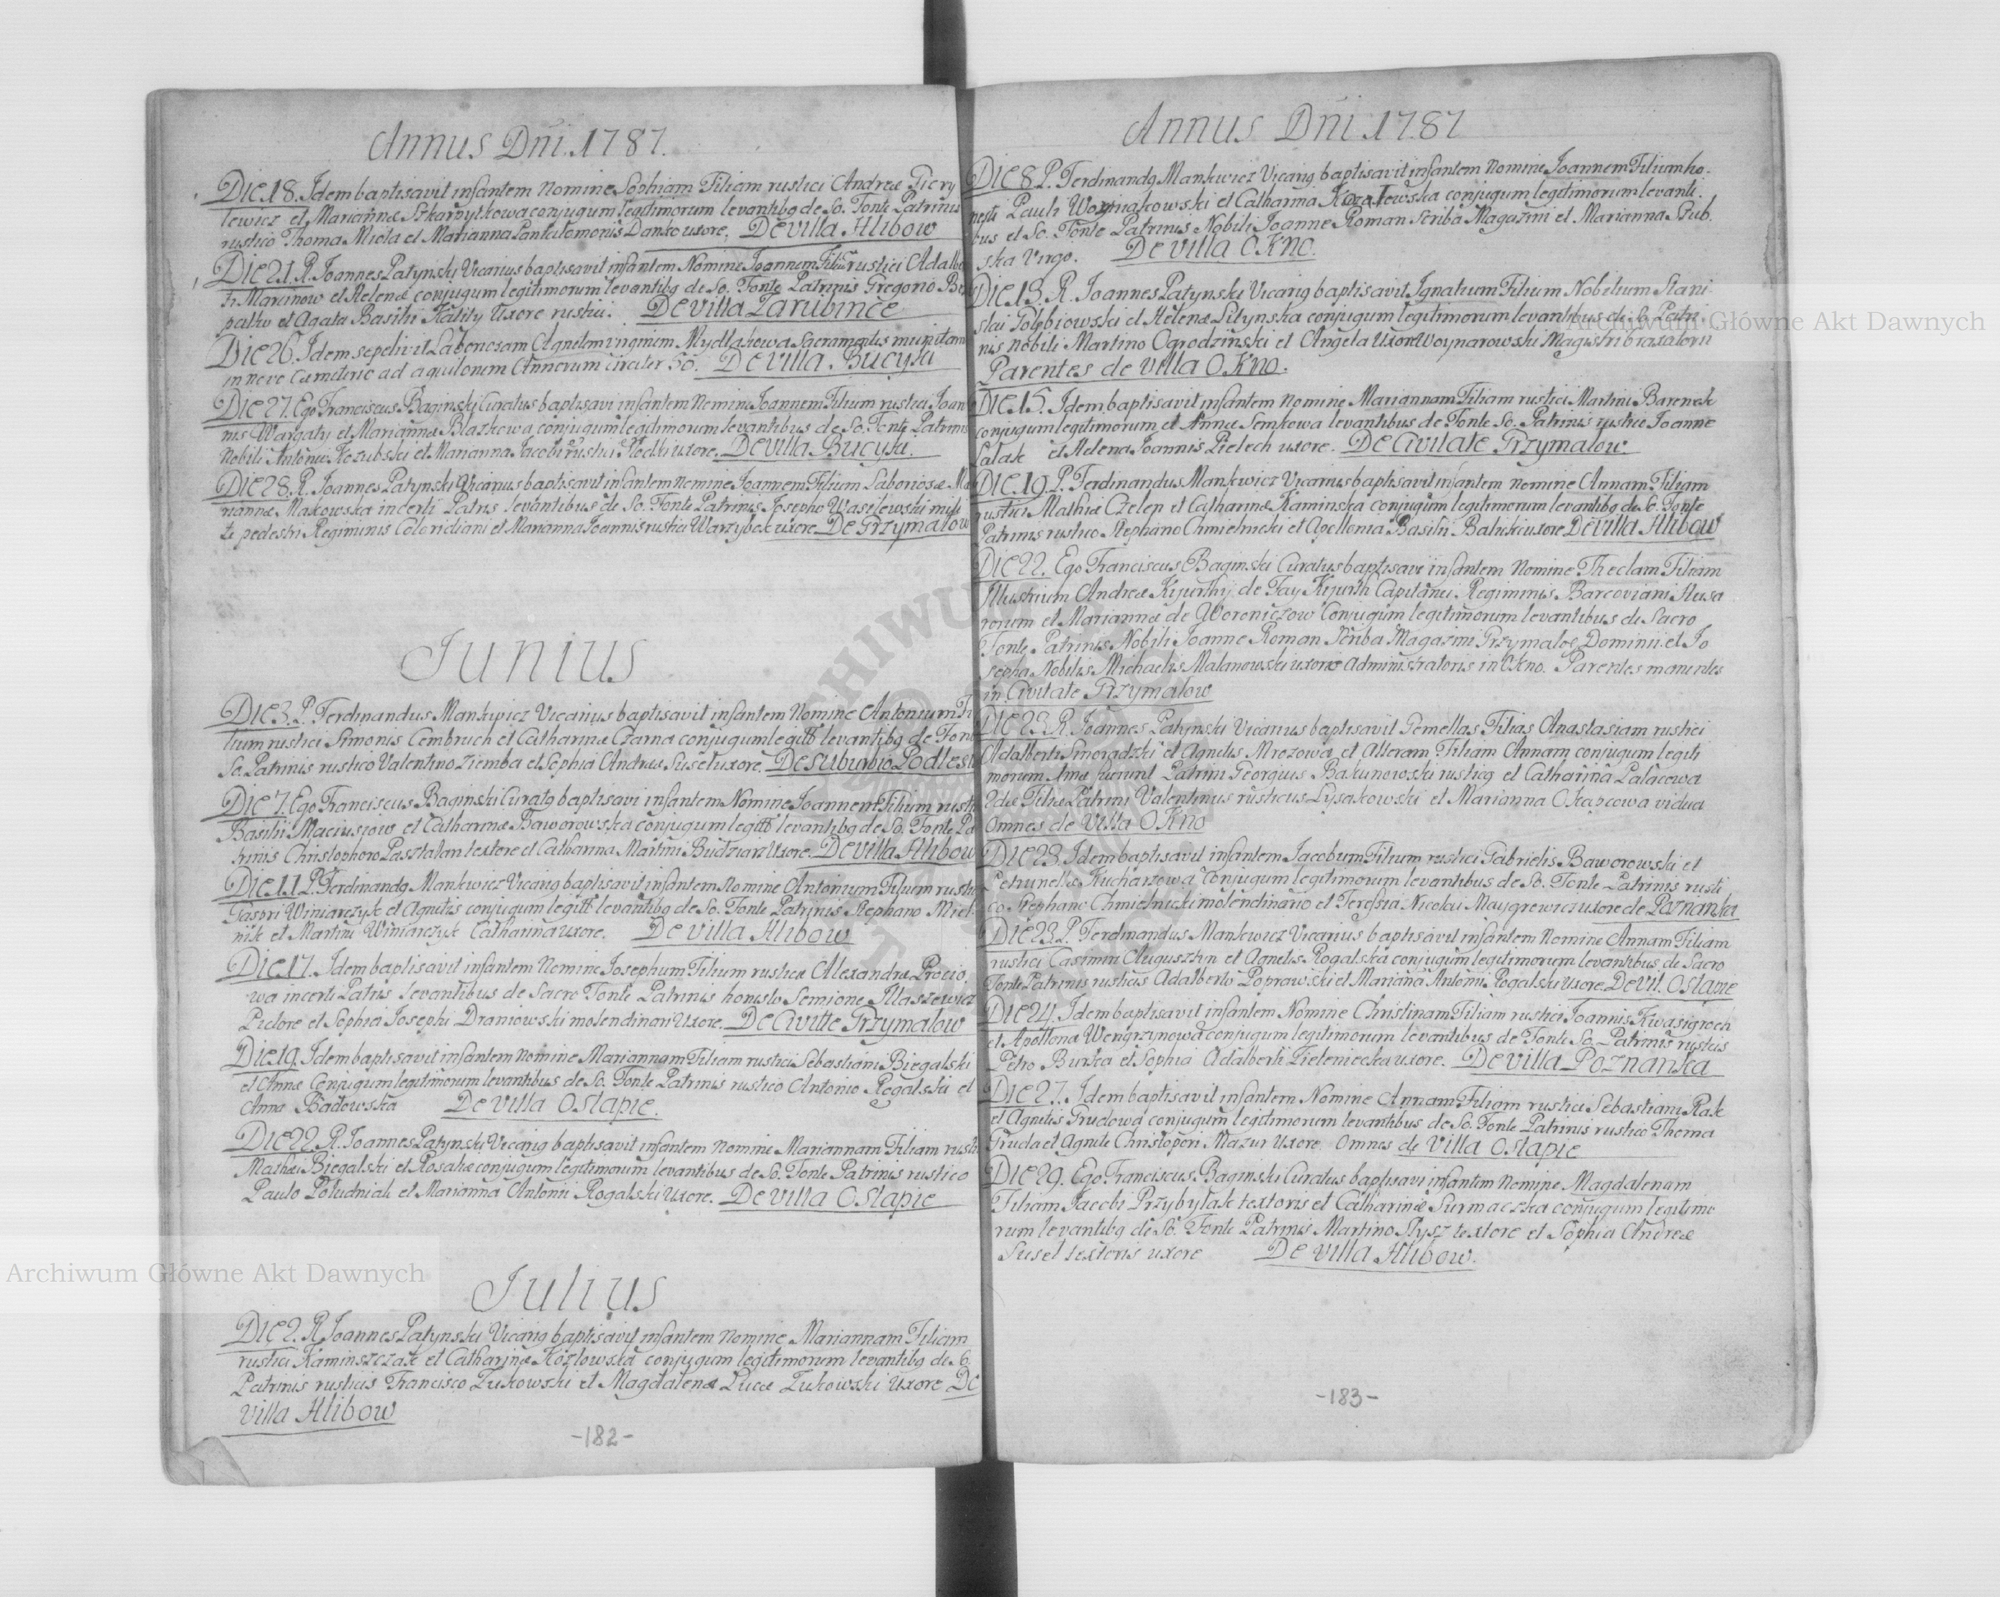 Annus Dni. 1787.
Die 18. Idem baptisavit infantem Nomine Sophiam Filiam rustici Andreæ Piery
lewicz et Mariannæ Szkarpytkowa conjugum legitimorum levantibg de So. Fonte Patrinis
rustico Thoma Micta et Marianna Pantalemonis Danko uxore. De villa Hlibow
Die 21. R. Joannes Patynski Vicarius baptisavit infantem Nomine Joannem Filium rustici Adalber
ti Marcinow et Helenæ conjugum legitimorum levantibg de So. Fonte Patrinis Gregorio
palko et Agata Basilii Uxore rustici. De villa Zarubince
Die 26. Idem sepelivit Laboriosam Agnetem virginem Mydlakowa Sacramentis munitam
in novo Cæmeterio ad aquilonem Annorum circiter 50. De villa Bucyki
Die 27. Ego Franciscus Baginski Curatus baptisavi infantem Nomine Joannem Filium rustici Joan
nis Wargaty et Mariannæ Blazkowa conjugum legitimorum levantibus de So. Fonte Patrinis
Nobili Antonio Kozubski et Marianna Jacobi rustici Klocki uxore. De villa Bucyki.
Die 28. R. Joannes Patynski Vicarius baptisavit infantem Nomine Joannem Filium Laboriosæ Ma
riannæ Makowska incerti Patris levantibus de So. Fonte Patrinis Josepho Wasilewski mili
te pedestri Regiminis Coloridiani et Marianna Joannis rustici Warzybok uxore. De Grzymalow
Junius
Die 3. P. Ferdinandus Mankiewicz Vicarius baptisavit infantem Nomine Antonium Fi
lium rustici Simonis Cembruch et Catharinæ Czarna conjugum legitt levantibg de Fonte
So. Patrinis rustico Valentino Ziemba et Sophia Andreæ Suset uxore. De suburbio Podlesie
Die 7. Ego Franciscus Baginski Curatg baptisavi infantem Nomine Joannem Filium rustici
Basilii Maciusiow et Catharinæ Baworowska conjugum legitt levantibg de So. Fonte Pa
trinis Christophoro Pasztalan textore et Catharina Martini Budziar Uxore. De villa Hlibow
Die 11. P. Ferdinandg Mankiewicz Vicarig baptisavit infantem Nomine Antonium Filium rustici
Gaspri Winiarczyk et Agnetis conjugum legitt levantibg de So. Fonte Patrinis Stephano Miel
nik et Martini Winiarczyk Catharina uxore. De villa Hlibow
Die 17. Idem baptisavit infantem Nomine Josephum Filium rusticæ Alexandræ Procio
wa incerti Patris levantibus de Sacro Fonte Patrinis honesto Semione Illaszewicz
Pictore et Sophia Josephi Draniowski molendinari Uxore. De Civitte Grzymalow
Die 19. Idem baptisavit infantem Nomine Mariannam Filiam rustici Sebastiani Biegalski
et Annæ Conjugum legitimorum levantibus de So. Fonte Patrinis rustico Antonio Rogalski et
Anna Badowska De villa Ostapie.
Die 22. R. Joannes Patynski Vicarig baptisavit infantem Nomine Mariannam Filiam rustici
Mathæi Biegalski et Rosaliæ conjugum legitimorum levantibus de So. Fonte Patrinis rustico
Paulo Poludniak et Marianna Antonii Rogalski Uxore. De villa Ostapie
Julius
Die 2. R. Joannes Patynski Vicarig baptisavit infantem Nomine Mariannam Filiam
rustici Kaminszczak et Catharinæ Kozlowska conjugum legitimorum levantibg de So.
Patrinis rusticis Francisco Zukowski et Magdalena Lucæ Zukowski Uxore De
villa Hlibow
-182-
Annus Dni 1787
Die 8. P. Ferdinandg Mankiewicz Vicarig baptisavit infantem Nomine Joannem Filium ho
nesti Pauli Woynakowski et Catharina conjugum legitimorum levanti
bus et So. Fonte Patrinis Nobili Joanne Roman Scriba Magazini et Marianna Stub
ska Virgo. De villa Okno.
Die 13. R. Joannes Patynski Vicarig baptisavit Ignatium Filium Nobilium Stani
slai Golębiowski et Helenæ Litynska conjugum legitimorum levantibus de So. Patri
nis Nobili Martino Ogrodzinski et Angela Uxore Woynarowski Magistri braxatorii
Parentes de villa Okno.
Die 15. Idem baptisavit infantem Nomine Mariannam Filiam rustici Martini Barenek
conjugum legitimorum et Annæ Semkowa levantibus de Fonte So. Patrinis rustico Joanne
Salak et Helena Joannis Pielech uxore. De Civitate Grzymalow.
Die 19. P. Ferdinandus Mankiewicz Vicarius baptisavit infantem nomine Annam Filiam
rustici Mathiæ Czelep et Catharinæ Kaminska conjugum legitimorum levantibg de So. Fonte
Patrinis rustico Stephano Chmielnicki et Apollonia Basilii Balicki uxore De villa Hlibow
Die 22. Ego Franciscus Baginski Curatus baptisavi infantem Nomine Theclam Filiam
Illustrium Andreæ Kijurthy de Fay Kijurth Capitanei Regiminis Barcoviani Husa
rorum et Mariannæ de Woroniczow Conjugum legitimorum levantibus de Sacro
Fonte Patrinis Nobili Joanne Roman Scriba Magazini Grzymalo. Dominii et Jo
sepha Nobilis Michaelis Malanowski uxore administratoris in Okno. Parentes manentes
in Civitate Grzymalow
Die 23. R. Joannes Patynski Vicarius baptisavit Gemellas Filias Anastasiam rustici
Adalberti Smoradzki et Agnetis Mrozowa et alteram Filiam Annam conjugum legiti
morum 1mæ fuerunt Patrini Georgius Bakunowski rusticg et Catharina Palacowa
2dæ Filiæ Patrini Valentinus rusticus Lysakowski et Marianna Okapcowa vidua
Omnes de villa Okno
Die 23. Idem baptisavit infantem Jacobum Filium rustici Gabrielis Baworowski et
Petrunellæ Kucharzowa Conjugum legitimorum levantibus de So. Fonte Patrinis rusti
co Stephano Chmielnicki molendinario et Teressia Nicolai Maygrewicz uxore de Poznanka
Die 23. P. Ferdinandus Mankiewicz Vicarius baptisavit infantem Nomine Annam Filiam
rustici Casimiri Augusztin et Agnetis Rogalska conjugum legitimorum levantibus de Sacro
Fonte Patrinis rusticis Adalberto Poprawski et Marianna Antonii Rogalski Uxore De vil. Ostapie
Die 24. Idem baptisavit infantem Nomine Christinam Filiam rustici Joannis Kwasigroch
et Apollona Wengrzynowa conjugum legitimorum levantibus de Fonte So. Patrinis rusticis
Petro Burka et Sophia Adalberti Zieleniecka uxore. De villa Poznanka
Die 27. Idem baptisavit infantem Nomine Annam Filiam rustici Sebastiani Rak
et Agnetis Grudowa conjugum legitimorum levantibus de So. Fonte Patrinis rustico Thoma
Gruda et Agnete Christopori Mazur Uxore. Omnes de villa Ostapie
Die 29. Ego Franciscus Baginski Curatus baptisavi infantem Nomine Magdalenam
Filiam Jacobi Przybylak textoris et Catharinæ Surmaczka conjugum legitimo
rum levantibg de So. Fonte Patrinis Martino Hysz textore et Sophia Andreæ
Suset textoris uxore De villa Hlibow.
-183-
Archiwum Główne Akt Dawnych
Archiwum Główne Akt Dawnych